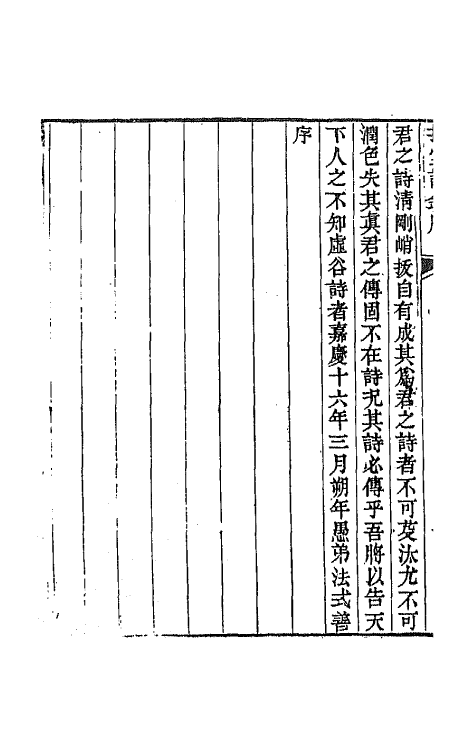 君之詩清剛峭拔自有成其爲君之詩者不可芟汰尤不可
潤色失其眞君之傳固不在詩況其詩必傳乎吾將以告天
下人之不知虛谷詩者嘉慶十六年三月朔年愚弟法式善
序